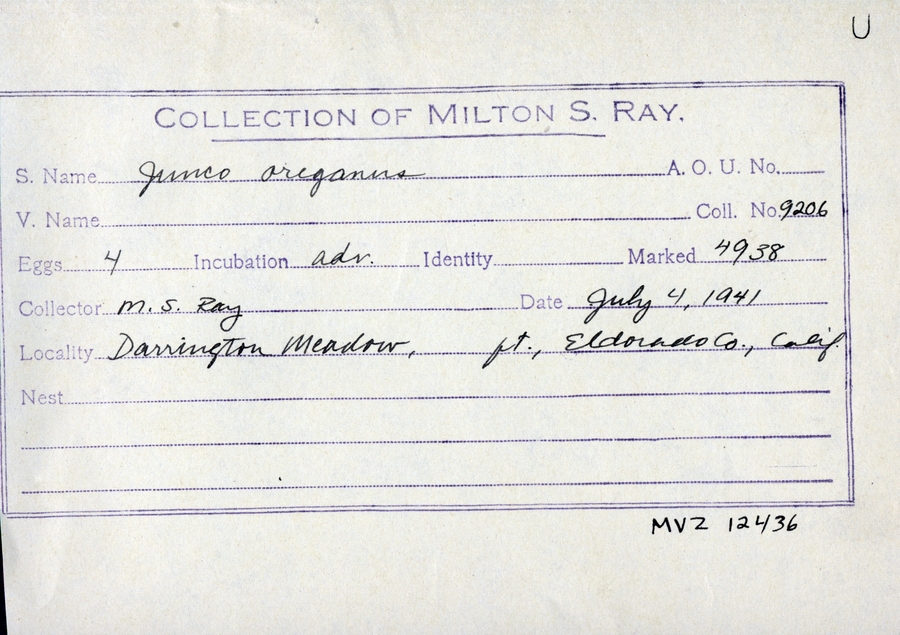 U
COLLECTION OF MILTON S. RAY.
S. Name Junco oreganus A. O. U. No.
V. Name Coll. No. 9206
Eggs 4 Incubation adv. Identity Marked 4938
Collector M. S. Ray Date July 4, 1941
Locality Darrington Meadow, ft., Eldorado Co., Calif.
Nest
MVZ 12436